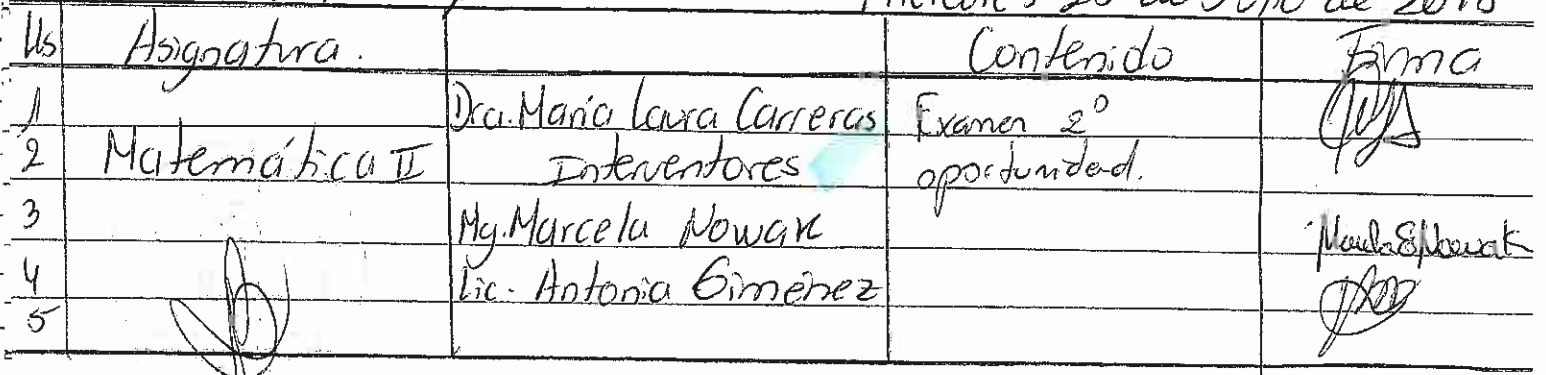 de 2018
Hs Asignatura. Contenido Firma
1 Dra. María Laura Carreras Examen 2º
2 Matemática II Interventores oportunidad.
3 Mg. Marcela Nowak
4 Lic. Antonia Giménez
5